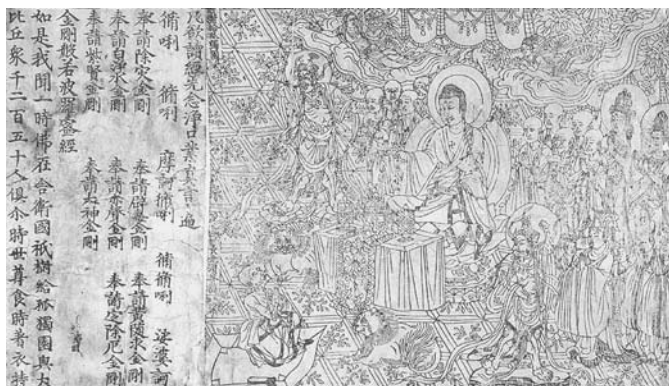 凡欲讀經先念淨口業真言一遍
脩唎 脩唎 摩訶脩唎 脩脩唎 娑婆訶
奉請除灾金剛 奉請辟毒金剛 奉請黃隨求金剛
奉請白淨水金剛 奉請赤聲金剛 奉請定除厄金剛
奉請紫賢金剛 奉請大神金剛
金剛般若波羅蜜經
如是我聞一時佛在舍衛國祇樹給孤獨園與大
比丘衆千二百五十人俱尒時世尊食時着衣持